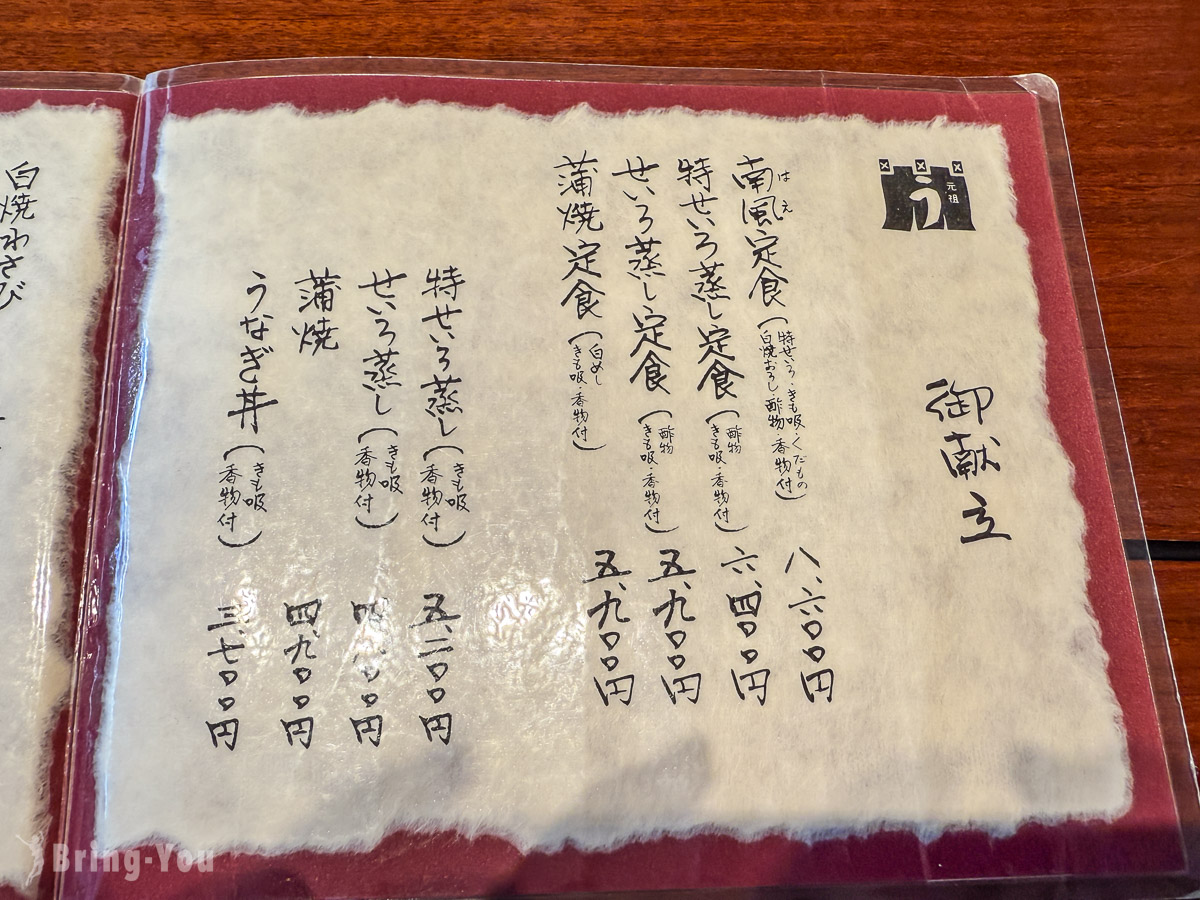 元祖
う
御献立
はえ
南風定食(特せいろ・きも吸・くだもの
白焼おろし・酢物・香物付) 八、六〇〇円
特せいろ蒸し定食(酢物
きも吸・香物付) 六、四〇〇円
せいろ蒸し定食(酢物
きも吸・香物付) 五、九〇〇円
蒲焼定食(白めし
きも吸・香物付) 五、九〇〇円
特せいろ蒸し(きも吸
香物付) 五、二〇〇円
せいろ蒸し(きも吸
香物付) 〇円
蒲焼 四、九〇〇円
うなぎ丼(きも吸
香物付) 三、七〇〇円
白焼わさび
Bring-You